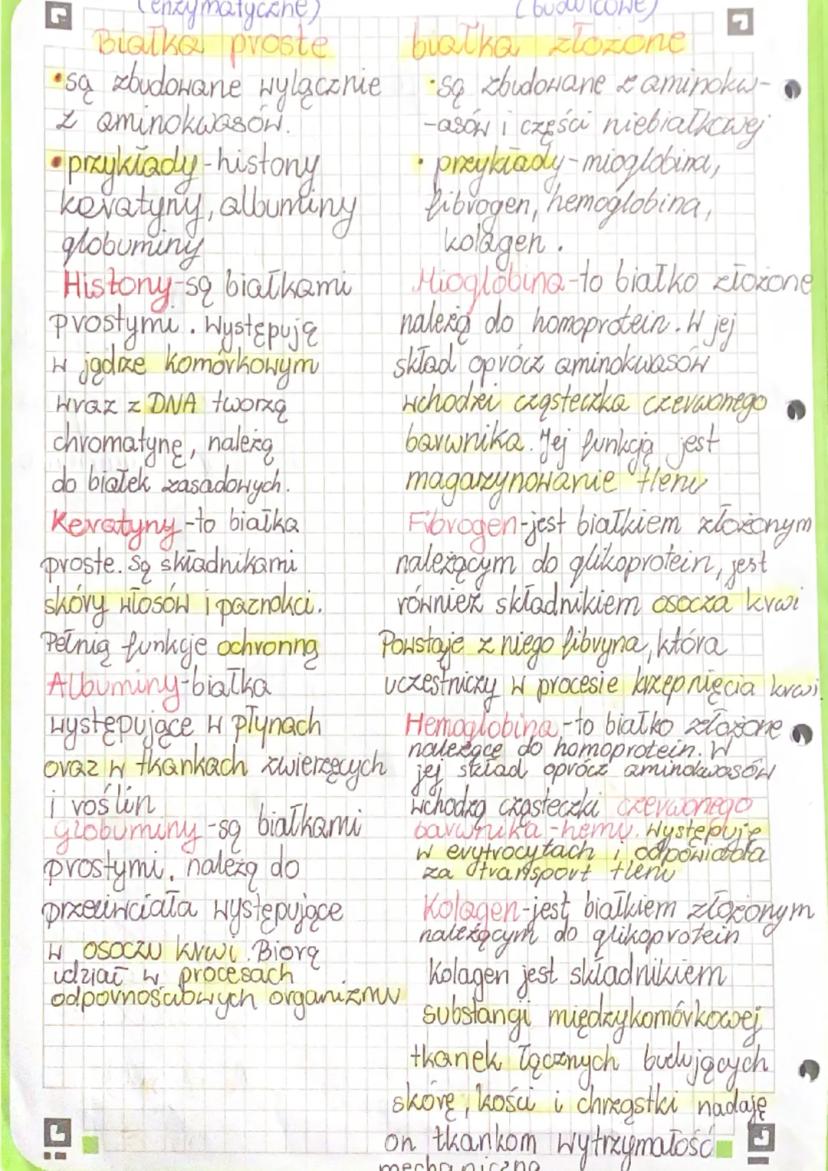 (enzymatyczne)
Białka proste
• są zbudowane wyłącznie
z aminokwasów.
• przykłady - histony
keratyny, albuminy
globuminy
Histony - są białkami
prostymi. Występują
w jądrze komórkowym
wraz z DNA tworzą
chromatynę, należą
do białek zasadowych.
Keratyny - to białka
proste. Są składnikami
skóry włosów i paznokci.
Pełnią funkcje ochronną
Albuminy - białka
występujące w płynach
oraz w tkankach zwierzęcych
i roślin
globuminy - są białkami
prostymi. należą do
przeciwciała występujące
w osoczu krwi. Biorą
udział w procesach
odpornościowych organizmu
(budulcowe)
białka złożone
• są zbudowane z aminokw-
-asów i części niebiałkowej
• przykłady - mioglobina,
fibrogen, hemoglobina,
kolagen.
Mioglobina - to białko złożone
należą do homoprotein. W jej
skład oprócz aminokwasów
wchodzi cząsteczka czerwonego
barwnika. Jej funkcją jest
magazynowanie tlenu
Fibrogen - jest białkiem złożonym
należącym do glikoprotein, jest
również składnikiem osocza krwi
Powstaje z niego fibryna, która
uczestniczy w procesie krzepnięcia krwi.
Hemoglobina - to białko złożone
należące do homoprotein. W
jej skład oprócz aminokwasów
wchodzą cząsteczki czerwonego
barwnika - hemu. Występuje
w erytrocytach i odpowiada
za transport tlenu
Kolagen - jest białkiem złożonym
należącym do glikoprotein
Kolagen jest składnikiem
substancji międzykomórkowej
tkanek łącznych budujących
skórę, kości i chrząstki nadaje
on tkankom wytrzymałość
mechaniczną